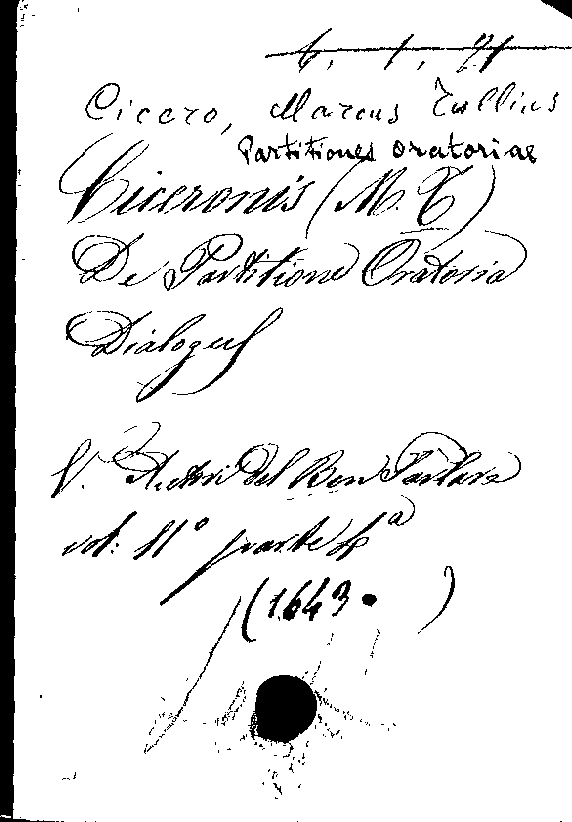 6. 1. 21
Cicero, Marcus Tullius
Partitiones oratoriae
Ciceronis (M. T)
De Partitione Oratoria
Dialogus
V. Autori del Ben Parlare
vol: 11° parte 4ª
(1643. )